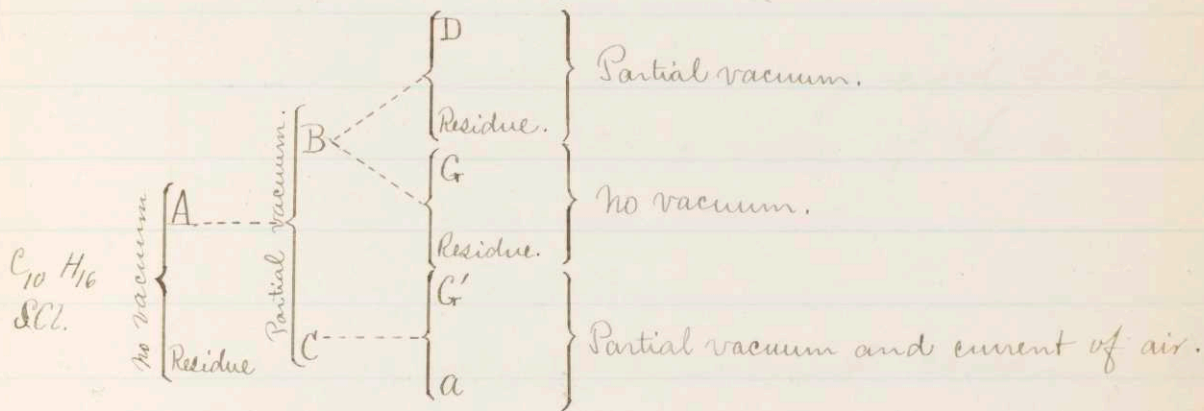 C10 H16
SCl.
No vacuum
A
Residue
Partial vacuum.
B
C
D
Residue.
Partial vacuum.
G
Residue.
No vacuum.
G'
a
Partial vacuum and current of air.